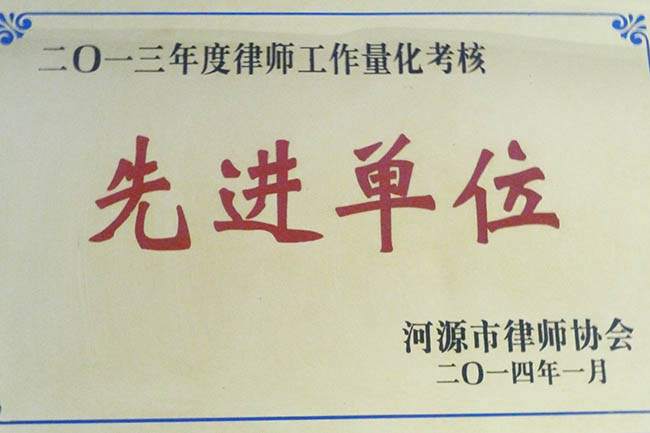 二〇一三年度律师工作量化考核
先进单位
河源市律师协会
二〇一四年一月